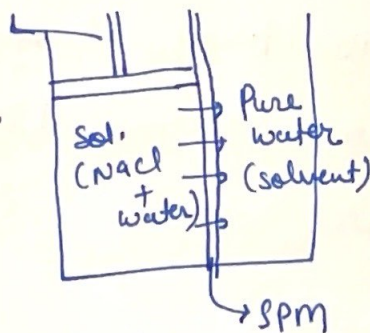 Sol.
(NaCl
+
water)
Pure
water
(solvent)
SPM